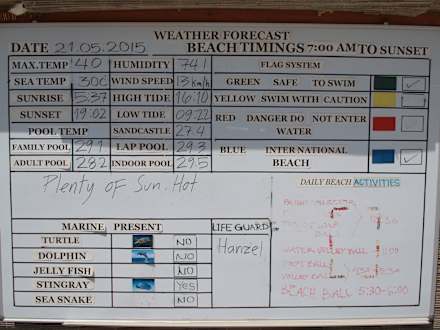 WEATHER FORECAST
DATE 21.05.2015 BEACH TIMINGS 7:00 AM TO SUNSET
MAX.TEMP 40 HUMIDITY 741 FLAG SYSTEM
SEA TEMP 30C WIND SPEED 13 km/h GREEN SAFE TO SWIM
SUNRISE 5:37 HIGH TIDE 16:10 YELLOW SWIM WITH CAUTION
SUNSET 19:02 LOW TIDE 09:22 RED DANGER DO NOT ENTER
WATER
POOL TEMP SANDCASTLE 27.4
FAMILY POOL 29.1 LAP POOL 29.3 BLUE INTERNATIONAL
BEACH
ADULT POOL 28.2 INDOOR POOL 29.5
Plenty of Sun. Hot
DAILY BEACH ACTIVITIES
MARINE PRESENT LIFE GUARD
TURTLE NO Hanzel
DOLPHIN NO
JELLY FISH NO
STINGRAY Yes
SEA SNAKE NO
WATER VOLLEY BALL
VOLLEY BALL
BEACH BALL 5:30-6:00